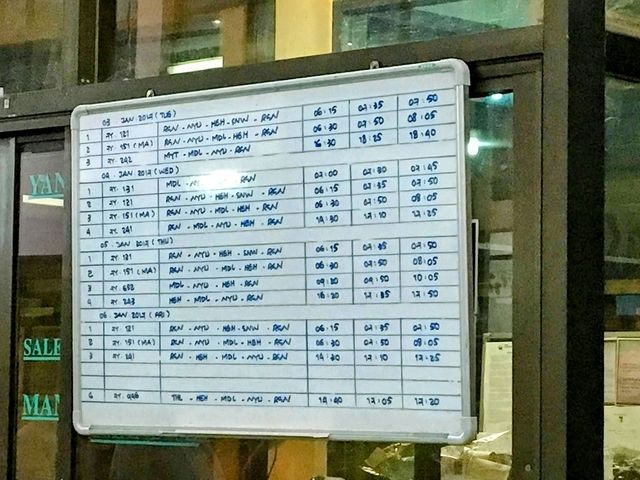 03 . JAN . 2017 (TUE)
1 7Y. 121 RGN - NYU - HEH - SNW - RGN 06:15 07:35 07:50
2 7Y. 151 (MA) RGN - NYU - MDL - HEH - RGN 06:30 07:50 08:05
3 7Y. 242 MYT - MDL - NYU - RGN 16:30 18:25 18:40
04 . JAN 2017 (WED)
1 7Y. 131 MDL - RGN 07:00 07:30 07:45
2 7Y. 121 RGN - NYU - HEH - SNW - RGN 06:15 07:35 07:50
3 7Y. 151 (MA) RGN - NYU - MDL - HEH - RGN 06:30 07:50 08:05
4 7Y. 241 RGN - MDL - NYU - HEH - RGN 14:30 17:10 17:25
05 . JAN 2017 (THU)
1 7Y. 121 RGN - NYU - HEH - SNW - RGN 06:15 07:35 07:50
2 7Y. 151 (MA) RGN - NYU - MDL - HEH - RGN 06:30 07:50 08:05
3 7Y. 652 MDL - RGN 09:20 09:50 10:05
4 7Y. 243 HEH - MDL - NYU - RGN 16:20 17:35 17:50
06 . JAN 2017 (FRI)
1 7Y. 121 RGN - NYU - HEH - SNW - RGN 06:15 07:35 07:50
2 7Y. 151 (MA) RGN - NYU - MDL - HEH - RGN 06:30 07:50 08:05
3 7Y. 241 RGN - HEH - MDL - NYU - RGN 14:30 17:10 17:25
6 7Y. THL - HEH - MDL - NYU - RGN 14:40 17:05 17:20
YAN
SALE
MAN